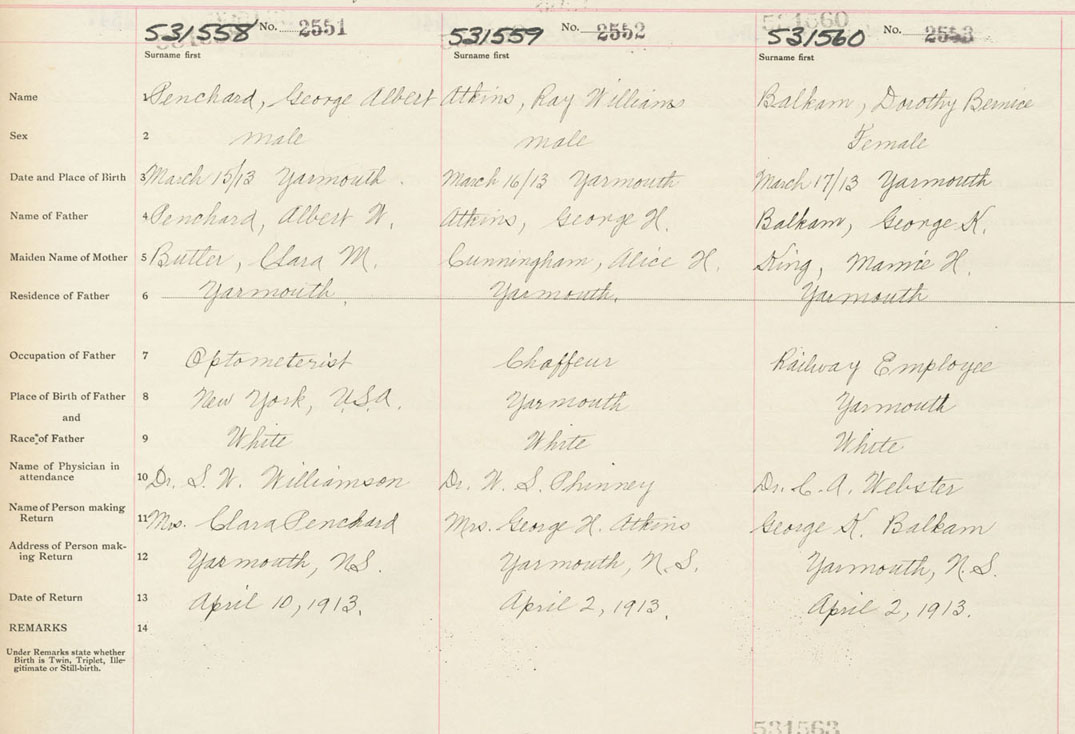 531560
531558 No. 2551 531559 No. 2552 531560 No. 2553
Surname first Surname first Surname first
Name 1 Penchard, George Albert Atkins, Ray Williams Balkam, Dorothy Bernice
Sex 2 male male Female
Date and Place of Birth 3 March 15/13 Yarmouth. March 16/13 Yarmouth March 17/13 Yarmouth
Name of Father 4 Penchard, Albert W. Atkins, George H. Balkam, George K.
Maiden Name of Mother 5 Butler, Clara M. Cunningham, Alice H. King, Mamie H.
Residence of Father 6 Yarmouth. Yarmouth. Yarmouth
Occupation of Father 7 Optometerist Chaffeur Railway Employee
Place of Birth of Father 8 New York, U.S.A. Yarmouth Yarmouth
and
Race of Father 9 White White White
Name of Physician in
attendance 10 Dr. S. W. Williamson Dr. W. S. Phinney Dr. C. A. Webster
Name of Person making
Return 11 Mrs. Clara Penchard Mrs. George H. Atkins George K. Balkam
Address of Person mak-
ing Return 12 Yarmouth, N.S. Yarmouth, N.S. Yarmouth, N.S.
Date of Return 13 April 10, 1913. April 2, 1913. April 2, 1913.
REMARKS 14
Under Remarks state whether
Birth is Twin, Triplet, Ille-
gitimate or Still-birth.
531563